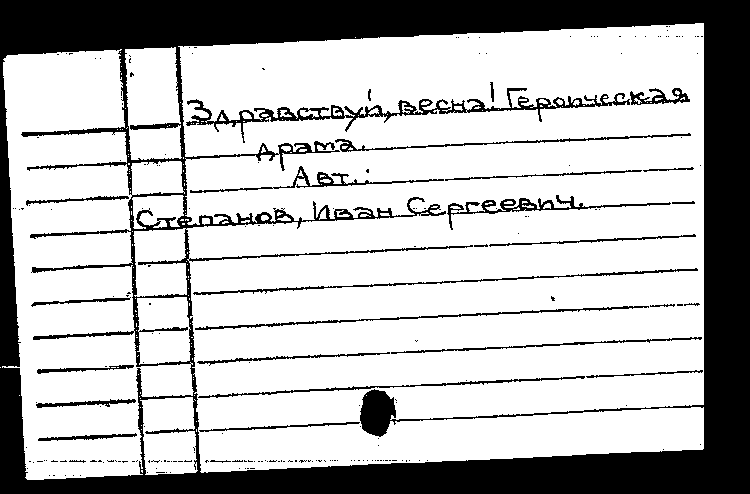 Здравствуй, весна! Героическая
драма.
Авт.:
Степанов, Иван Сергеевич.